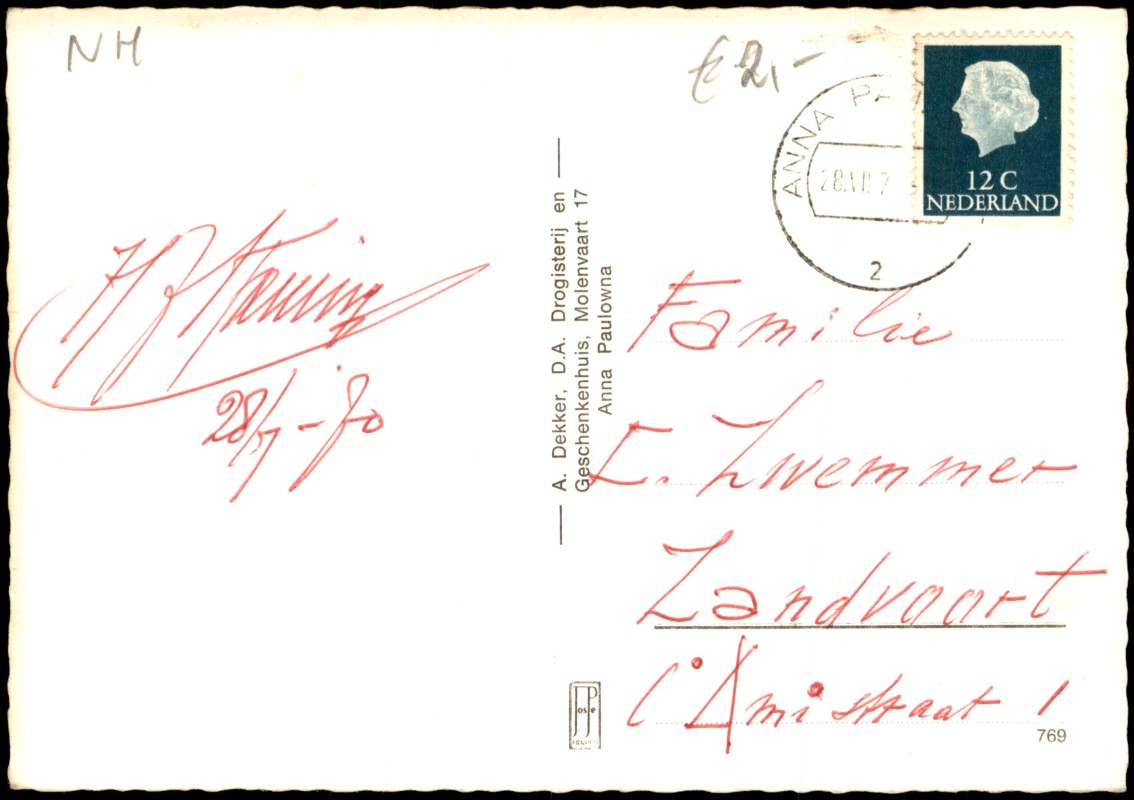 NH
€ 2,-
ANNA PA
28.VII.7
2
12 C
NEDERLAND
A. Dekker, D.A. Drogisterij en
Geschenkenhuis, Molenvaart 17
Anna Paulowna
28/7-70
Familie
E. Zwemmer
Zandvoort
straat 1
JosPe
769